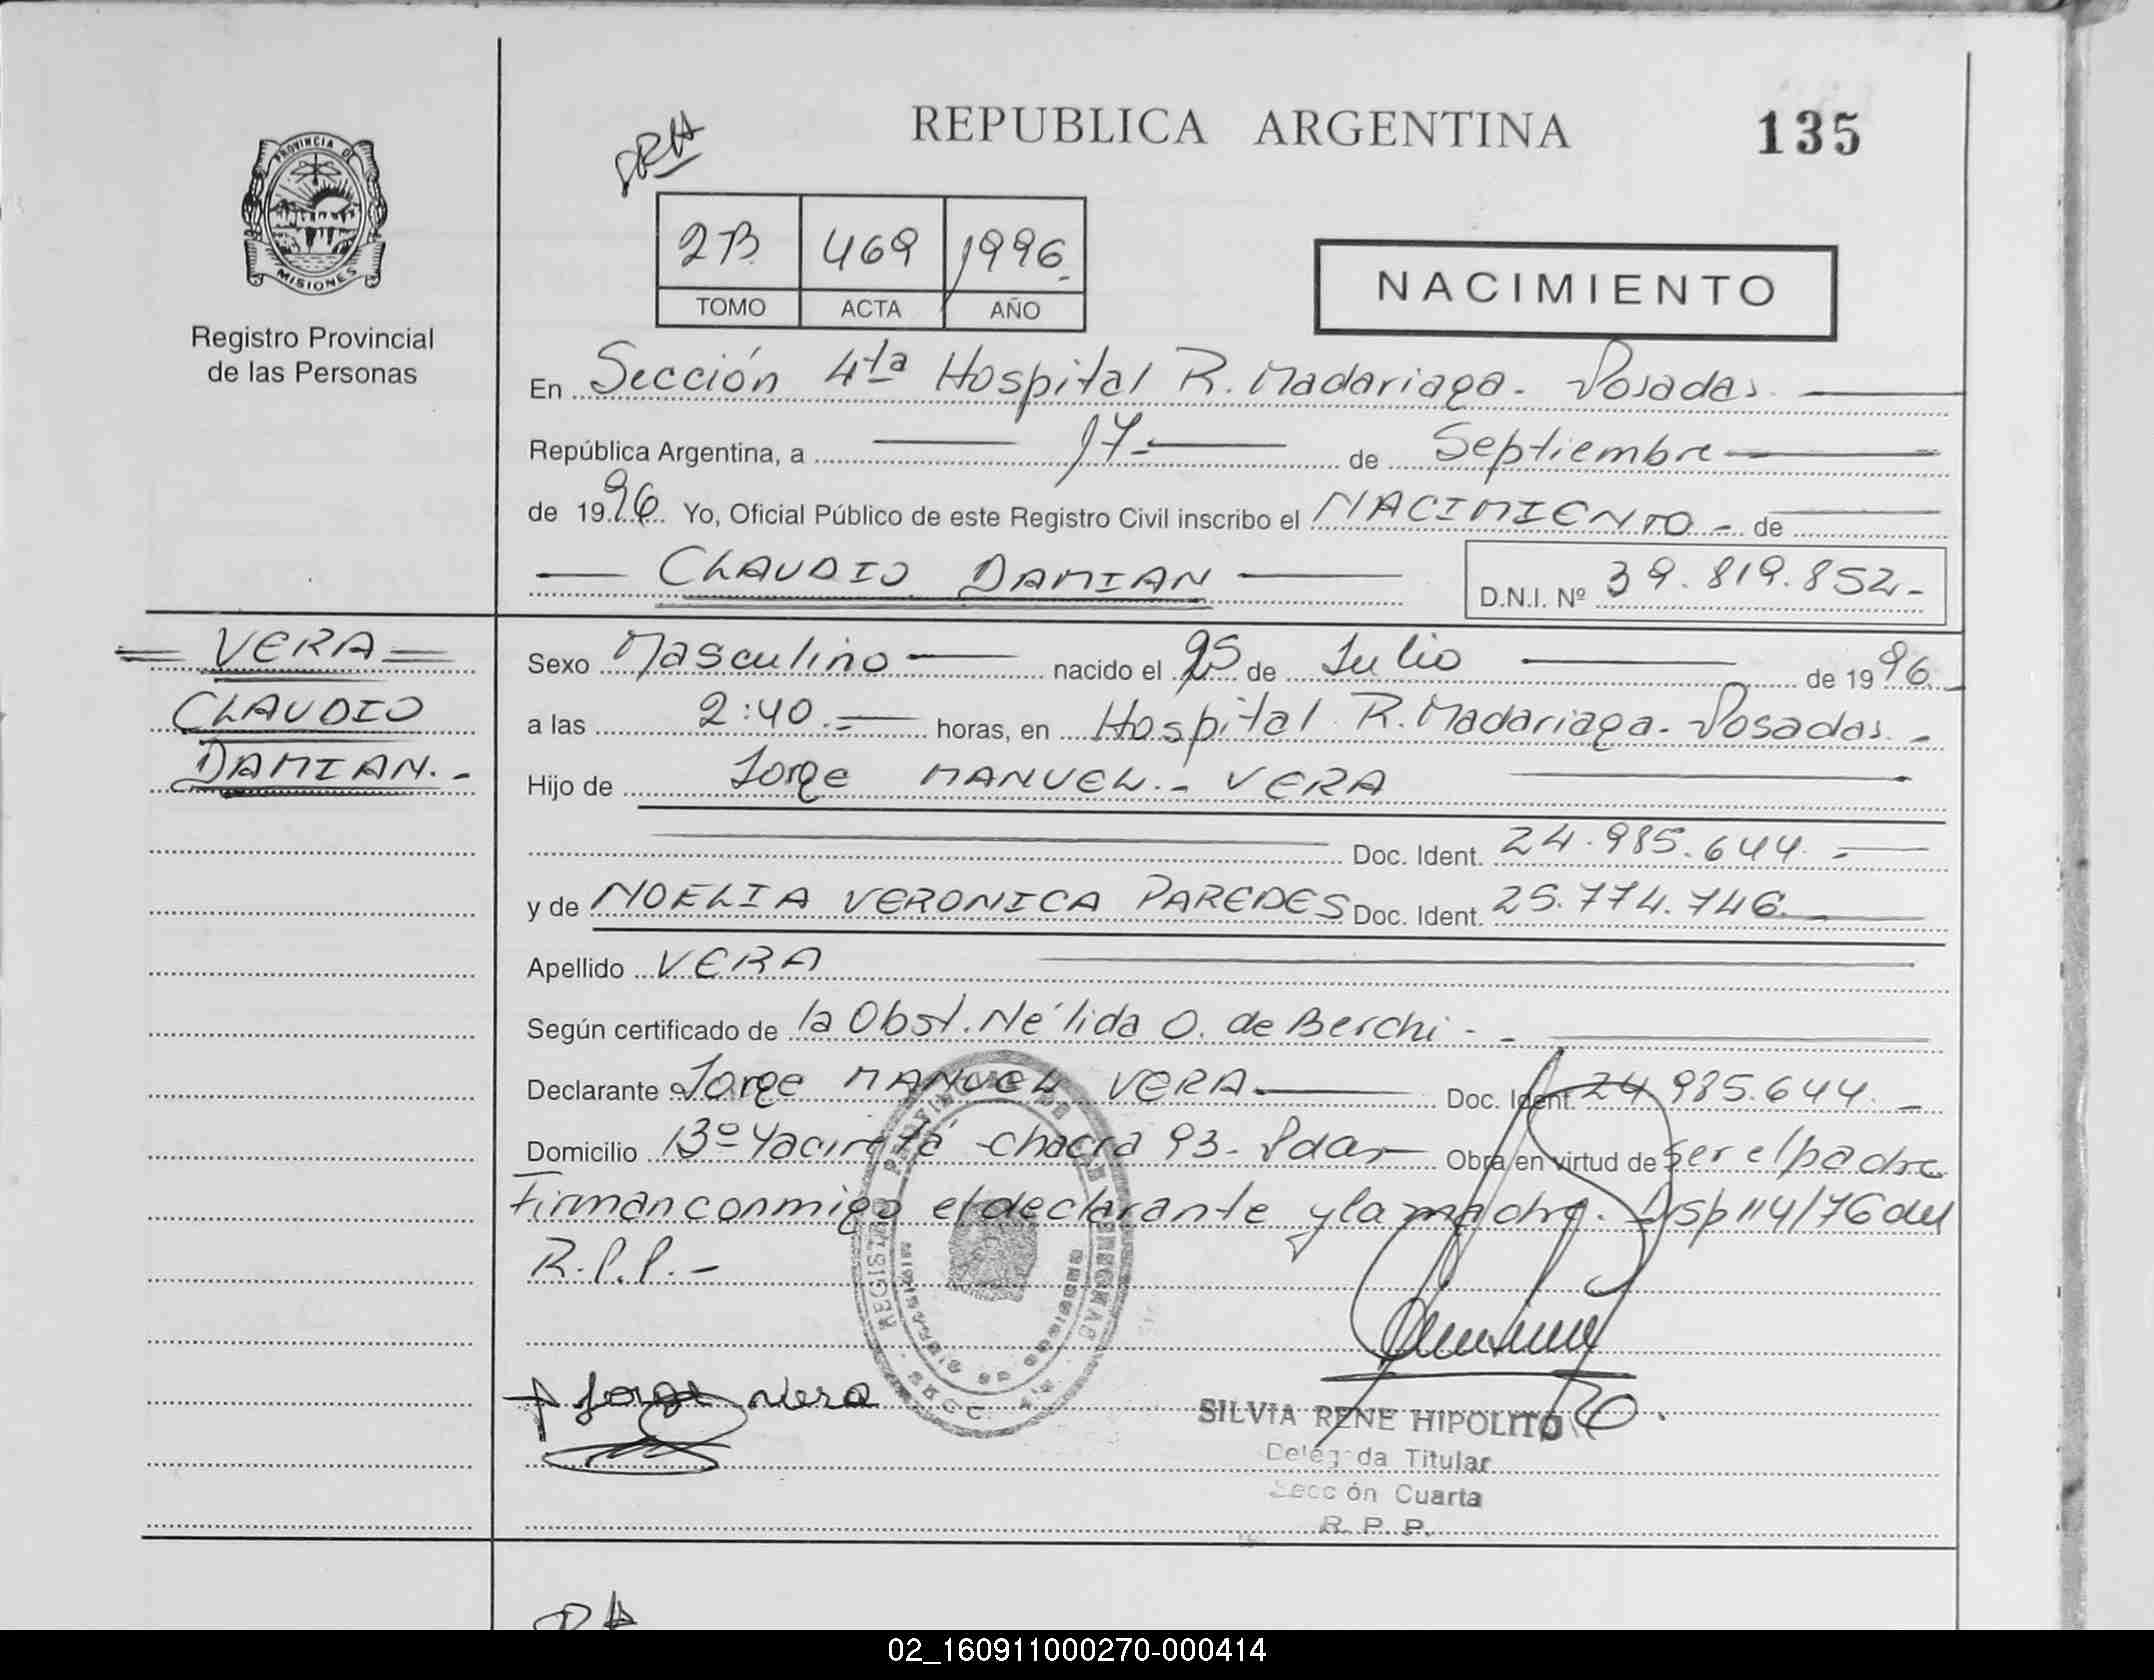 REPUBLICA ARGENTINA
135
PROVINCIA DE
MISIONES
Registro Provincial
de las Personas
2B 469 1996
TOMO ACTA AÑO
NACIMIENTO
En Sección 4ta Hospital R. Madariaga - Posadas.
República Argentina, a 17 - de Septiembre
de 1996 Yo, Oficial Público de este Registro Civil inscribo el NACIMIENTO - de
CLAUDIO DAMIAN
D.N.I. Nº 39.819.852-
VERA
CLAUDIO
DAMIAN.-
Sexo Masculino nacido el 25 de Julio de 1996
a las 2:40.- horas, en Hospital R. Madariaga - Posadas. -
Hijo de Jorge MANUEL.- VERA
Doc. Ident. 24.985.644.-
y de NOELIA VERONICA PAREDES Doc. Ident. 25.774.746.-
Apellido VERA
Según certificado de la Obst. Nélida O. de Berchi -
Declarante Jorge MANUEL VERA Doc. Ident. 24 985.644. -
Domicilio Bº Yacireta chacra 93 - Pdas Obra en virtud de ser el padre
Firman conmigo el declarante y la madre. Disp 114/76 del
R.P.P. -
Jorge Vera
SILVIA RENE HIPOLITO
Delegada Titular
Sección Cuarta
R. P. P.
02_160911000270-000414